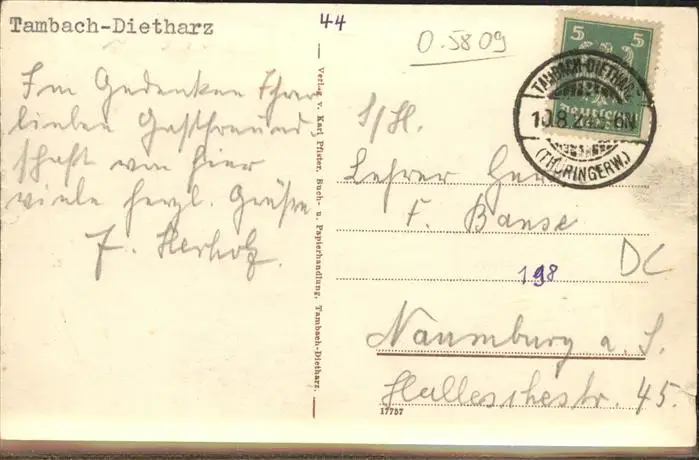 Tambach-Dietharz
44
0.5809
Im Gedenken Ihrer
lieben Gastfreund-
schaft von hier
viele herzl. Grüße
F. Herholz.
Verlag v. Karl Pfister, Buch- u. Papierhandlung, Tambach-Dietharz.
5 5
TAMBACH-DIETHARZ
10.8.2
6N
(THÜRINGERW.)
S/H.
Lehrer
F. Banse
198
DC
Naumburg a. S.
Halleschestr. 45.
17757